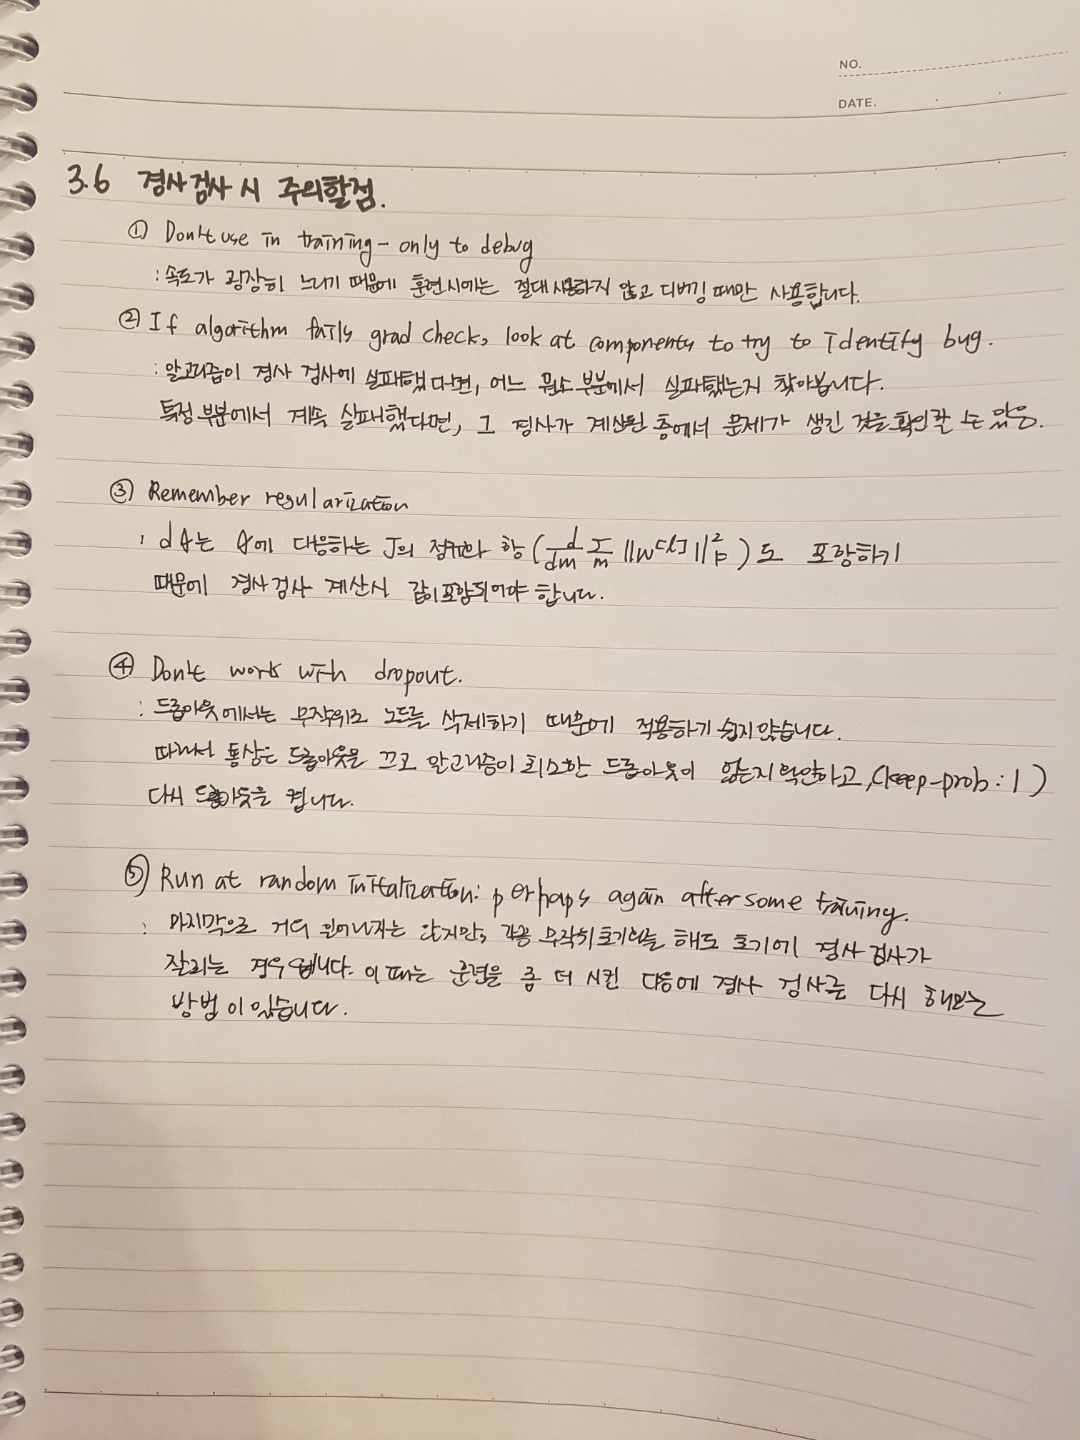 NO.
DATE.
3.6 경사검사 시 주의할점.
① Don't use in training - only to debug
: 속도가 굉장히 느리기 때문에 훈련시에는 절대 사용하지 않고 디버깅 때만 사용합니다.
② If algorithm fails grad check, look at components to try to identify bug.
: 알고리즘이 경사 검사에 실패했다면, 어느 원소 부분에서 실패했는지 찾아봅니다.
특정 부분에서 계속 실패했다면, 그 경사가 계산된 층에서 문제가 생긴 것을 확인할 수 있음.
③ Remember regularization
: dθ는 θ에 대응하는 J의 항 (d/dm Σ/m ||w^[l]||²_F) 도 포함하기
때문에 경사검사 계산시 같이 포함되어야 합니다.
④ Don't work with dropout.
: 드롭아웃에서는 무작위로 노드를 삭제하기 때문에 적용하기 쉽지 않습니다.
따라서 통상은 드롭아웃을 끄고 알고리즘이 최소한 드롭아웃이 없는지 확인하고, (keep-prob : 1)
다시 드롭아웃을 켭니다.
⑤ Run at random initalization: perhaps again after some training.
: 마지막으로 거의 일어나지는 않지만, 가끔 무작위 초기화를 해도 초기에 경사 검사가
잘되는 경우입니다. 이 때는 훈련을 좀 더 시킨 다음에 경사 검사를 다시 해보는
방법이 있습니다.